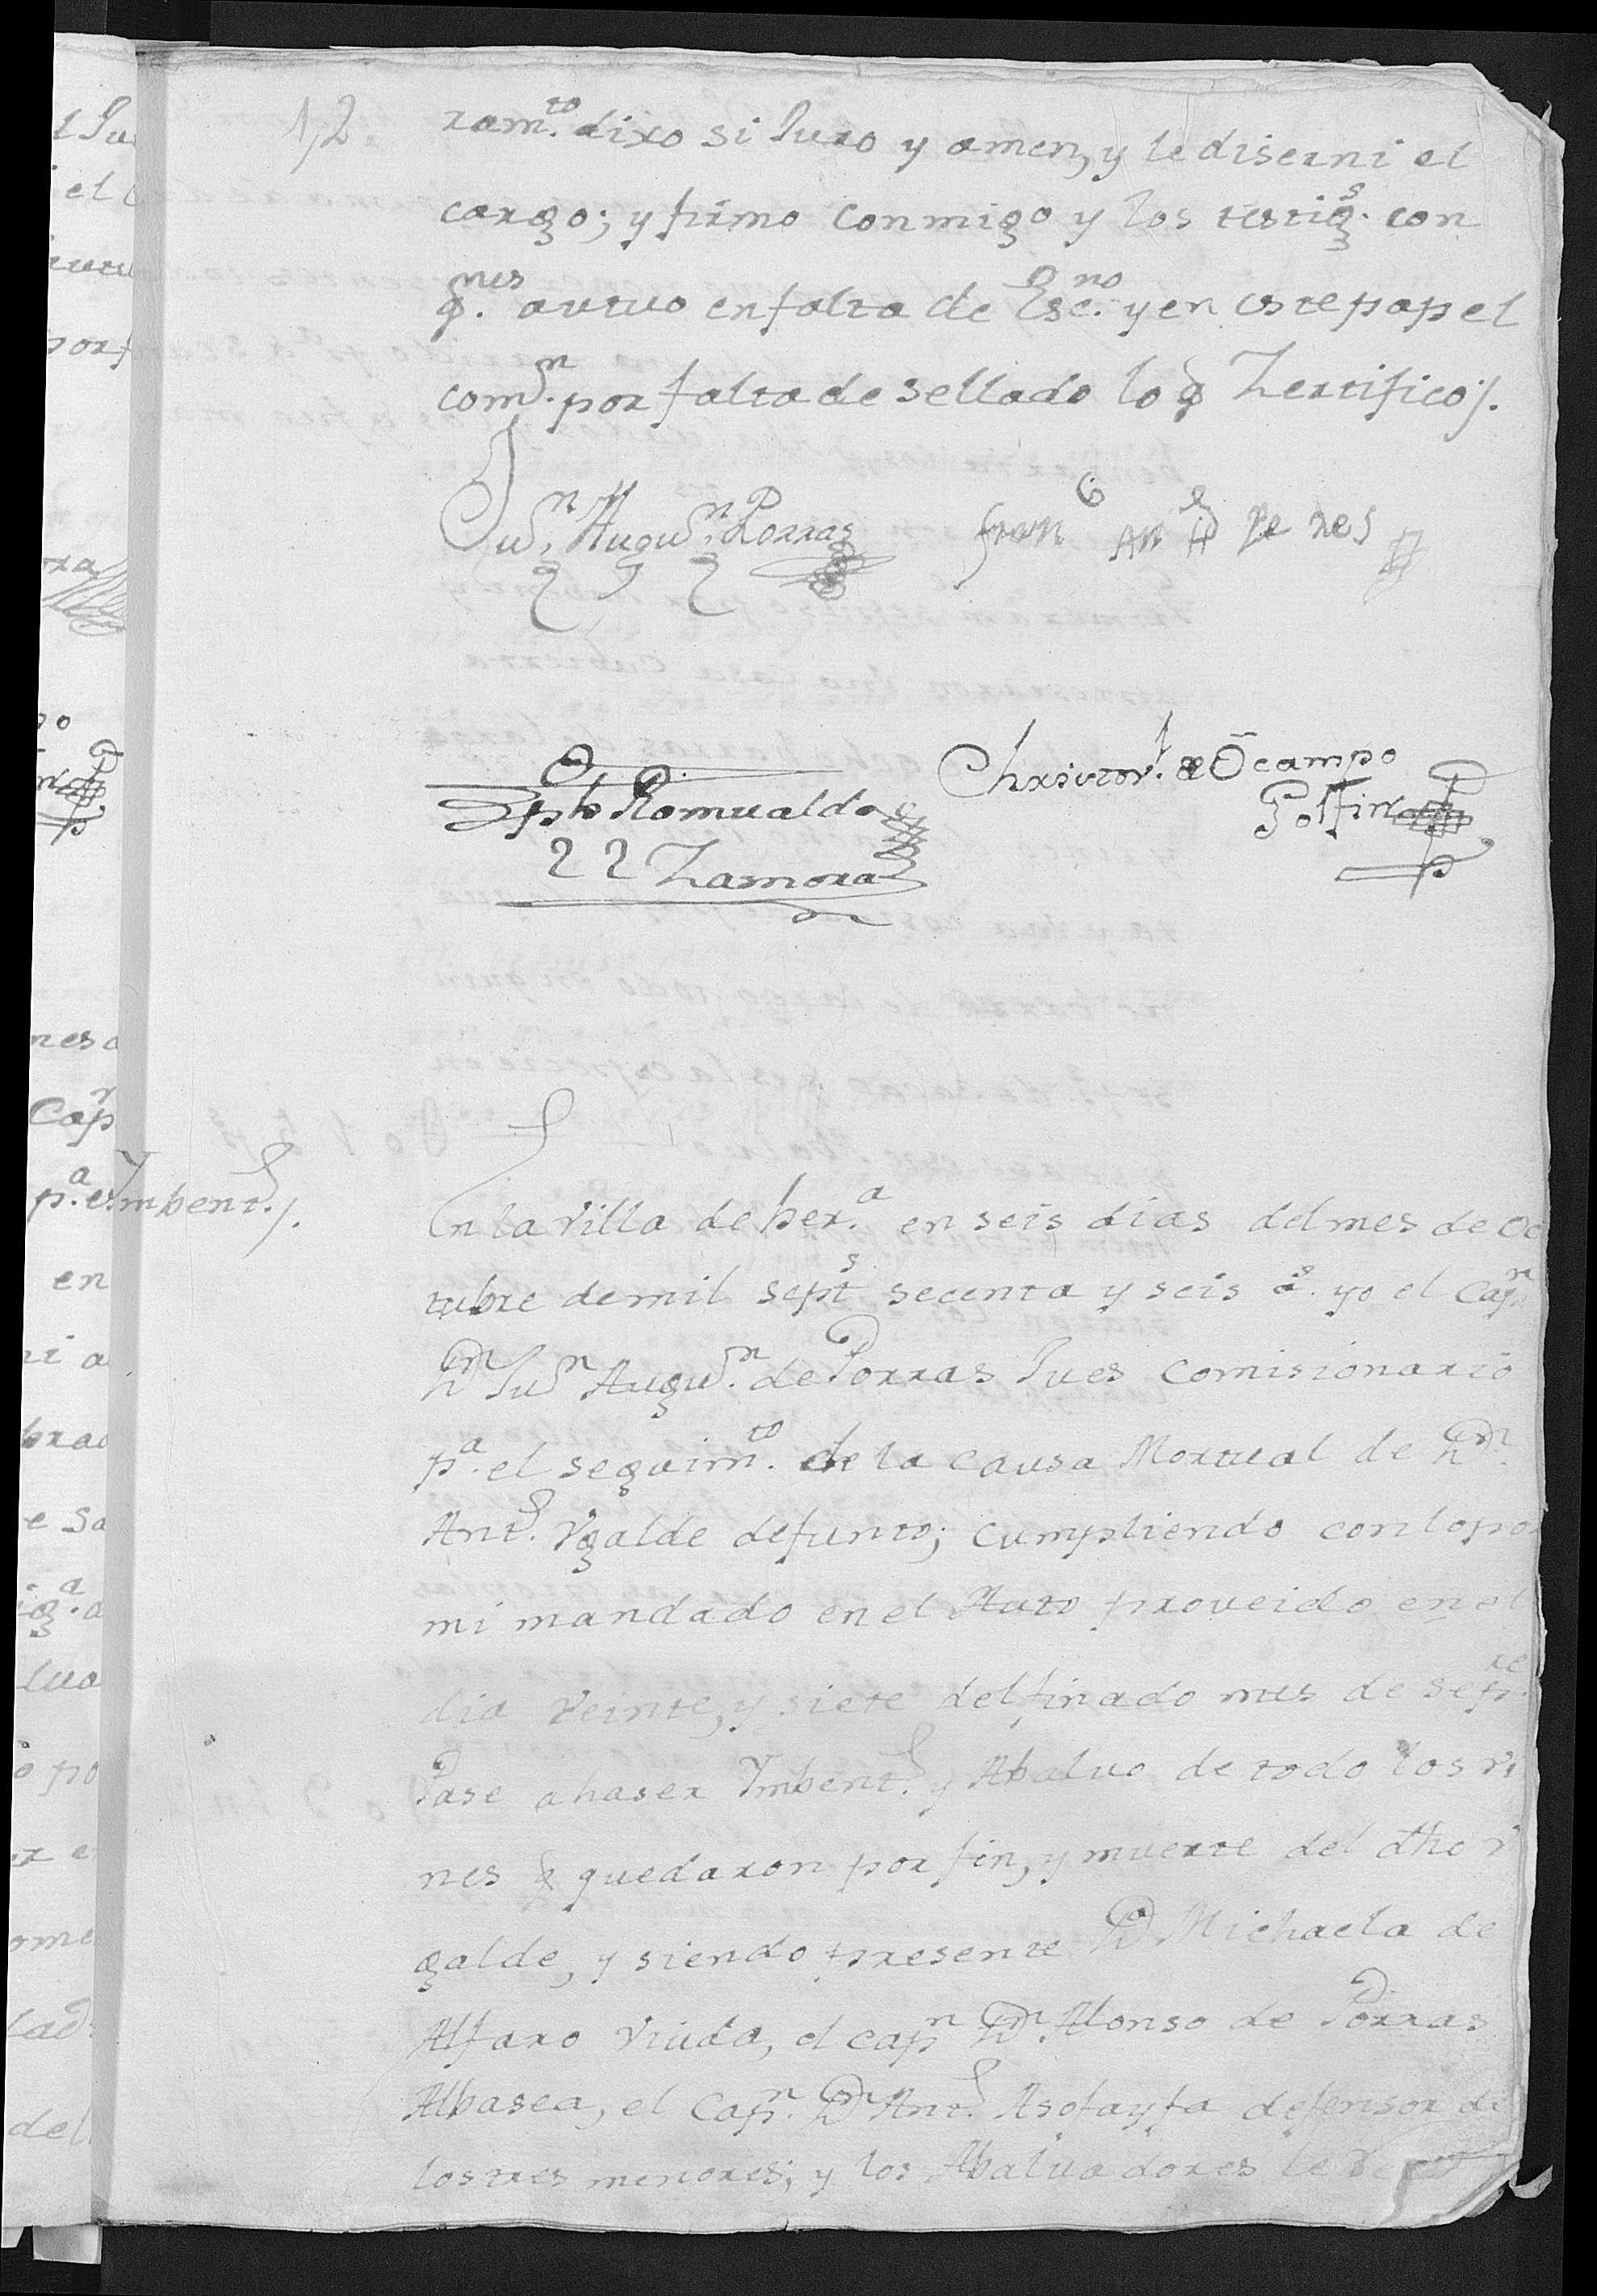 12
ram.to dixo si Juro y amen, y le diserni el
cargo; y firmo conmigo y los testig.s con
q.nes autuo en falta de Esc.no y en este papel
com.n por falta de sellado lo q Zertifico/.
Ju.n Augu.n Porras
fran.co Anto Peres
Jph Romualdo
Zamora
Christov.l de Ocampo
Golfin
Ymbent.o/.
En la Villa de her.a en seis dias del mes de Oc
tubre de mil sept.s secenta y seis a.s yo el Cap.n
Dn Ju.n Augu.n de Porras Jues comisionario
p.a el seguim.to de la causa Mortual de Dn.
Ant.o Vgalde defunto; cumpliendo con lo por
mi mandado en el Auto proveido en el
dia Veinte, y siete del finado mes de sep.re
Pase a haser Ymbent.o y Abaluo de todo los vi
nes q quedaron por fin, y muerte del dho V
galde, y siendo presente Da Michaela de
Alfaro Viuda, el cap.n Dn. Alonso de Porras
Albasea, el Cap.n Dn Ant.o Asofayfa defensor de
los tres menores; y los Abaluadores le